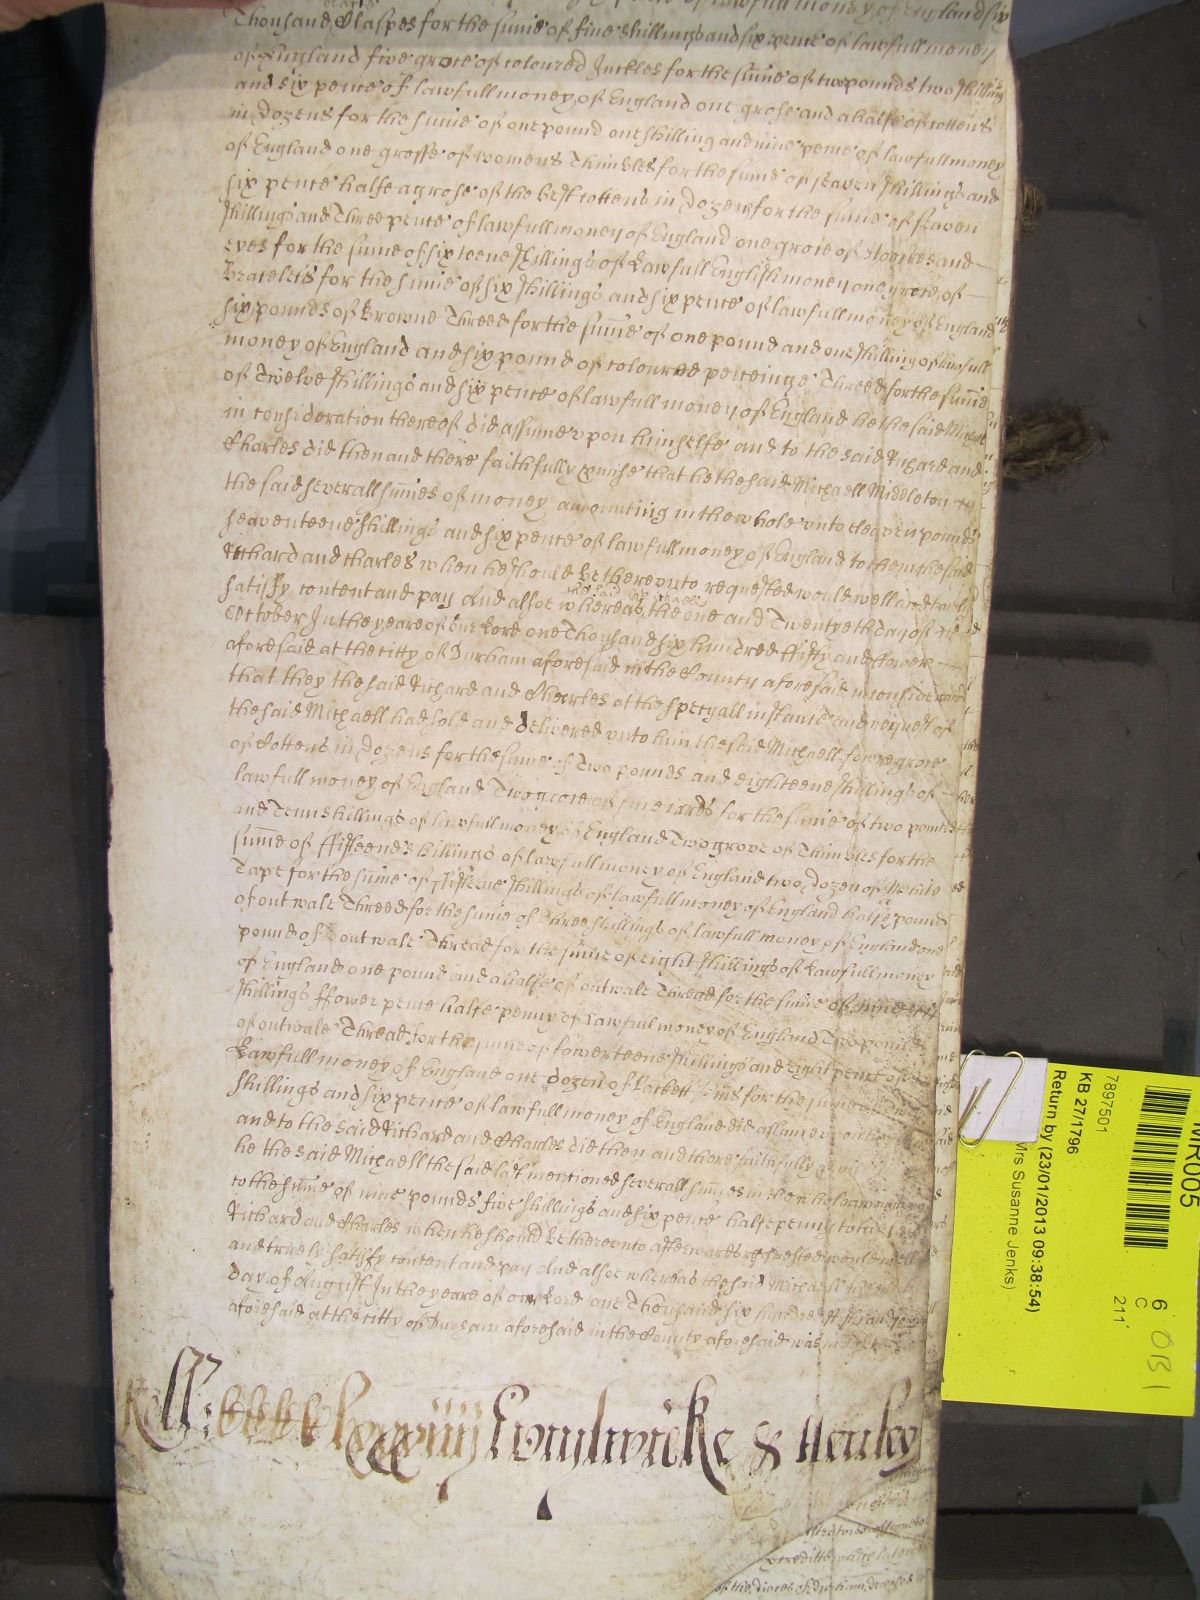 of lawfull money of England six
Thousand Claspes for the sume of five shillings and six pence of lawfull money
of England five grose of coloured Inckles for the sume of two pounds two shillings
and six pence of lawfull money of England one grose and a halfe of cottens
in dozens for the sume of one pound one shilling and nine pence of lawfull money
of England one grosse of womens Thimbles for the sume of seaven shillings and
six pence halfe a grose of the best cottens in dozens for the sume of seaven
shillings and Three pence of lawfull money of England one grose of Hookes and
eyes for the sume of sixteene shillings of Lawfull English money one grose of
Bracelets for the sume of six shillings and six pence of lawfull money of England
six pounds of Browne Threed for the sume of one pound and one shilling of lawfull
money of England and six pound of coloured peiceinge Threed for the sume
of Twelve shillings and six pence of lawfull money of England he the said Michael
in consideration thereof did assume upon himselfe and to the said Richard and
Charles did then and there faithfully promise that he the said Michaell Middleton
the said severall sumes of money amounting in the whole unto eleaven pounds
seaventeene shillings and six pence of lawfull money of England to them the said
Richard and Charles when he should be thereunto requested would well and truely
satisfy content and pay And alsoe whereas the said Michaell the one and Twentyeth day of
October In the yeare of our Lord one Thousand six hundred ffifty and ffower
aforesaid at the citty of Durham aforesaid in the County aforesaid in consideracon
that they the said Richard and Charles at the speciall instance and request of
the said Michaell had sold and delivered unto him the said Michaell fower grose
of Cottens in dozens for the sume of Two pounds and eighteene shillings of
lawfull money of England Two grose of fine for the sume of two pounds
and Tenn shillings of lawfull money of England Two grose of Thimbles for the
sume of ffifteene shillings of lawfull money of England two dozen of White
Tape for the sume of ffifteene shillings of lawfull money of England halfe a pound
of outwale Threed for the sume of Three shillings of lawfull money of England one
pound of outwale Thread for the sume of eight shillings of Lawfull money
of England one pound and a halfe of outwale Thread for the sume of nine
shillings ffower pence halfe penny of Lawfull money of England Two pounds
of outwale Thread for the sume of fowerteene shillings and eight pence of
Lawfull money of England one dozen of for the sume of
shillings and six pence of lawfull money of England did assume upon
and to the said Richard and Charles did then and there faithfully
he the said Michaell the said last mentioned severall sumes in the whole amounting
to the sume of nine pounds five shillings and six pence halfe penny to the
Richard and Charles when he should be thereunto afterwards requested would well
and truely satisfy content and pay And alsoe whereas the said Michaell
day of August In the yeare of our Lord one Thousand six hundred ffifty and fower
aforesaid at the citty of Durham aforesaid in the County aforesaid was indebted
& Henley
MR005
7897501
KB 27/1796
Return by (23/01/2013 09:38:54)
Mrs Susanne Jenks)
6
C
211
OB1